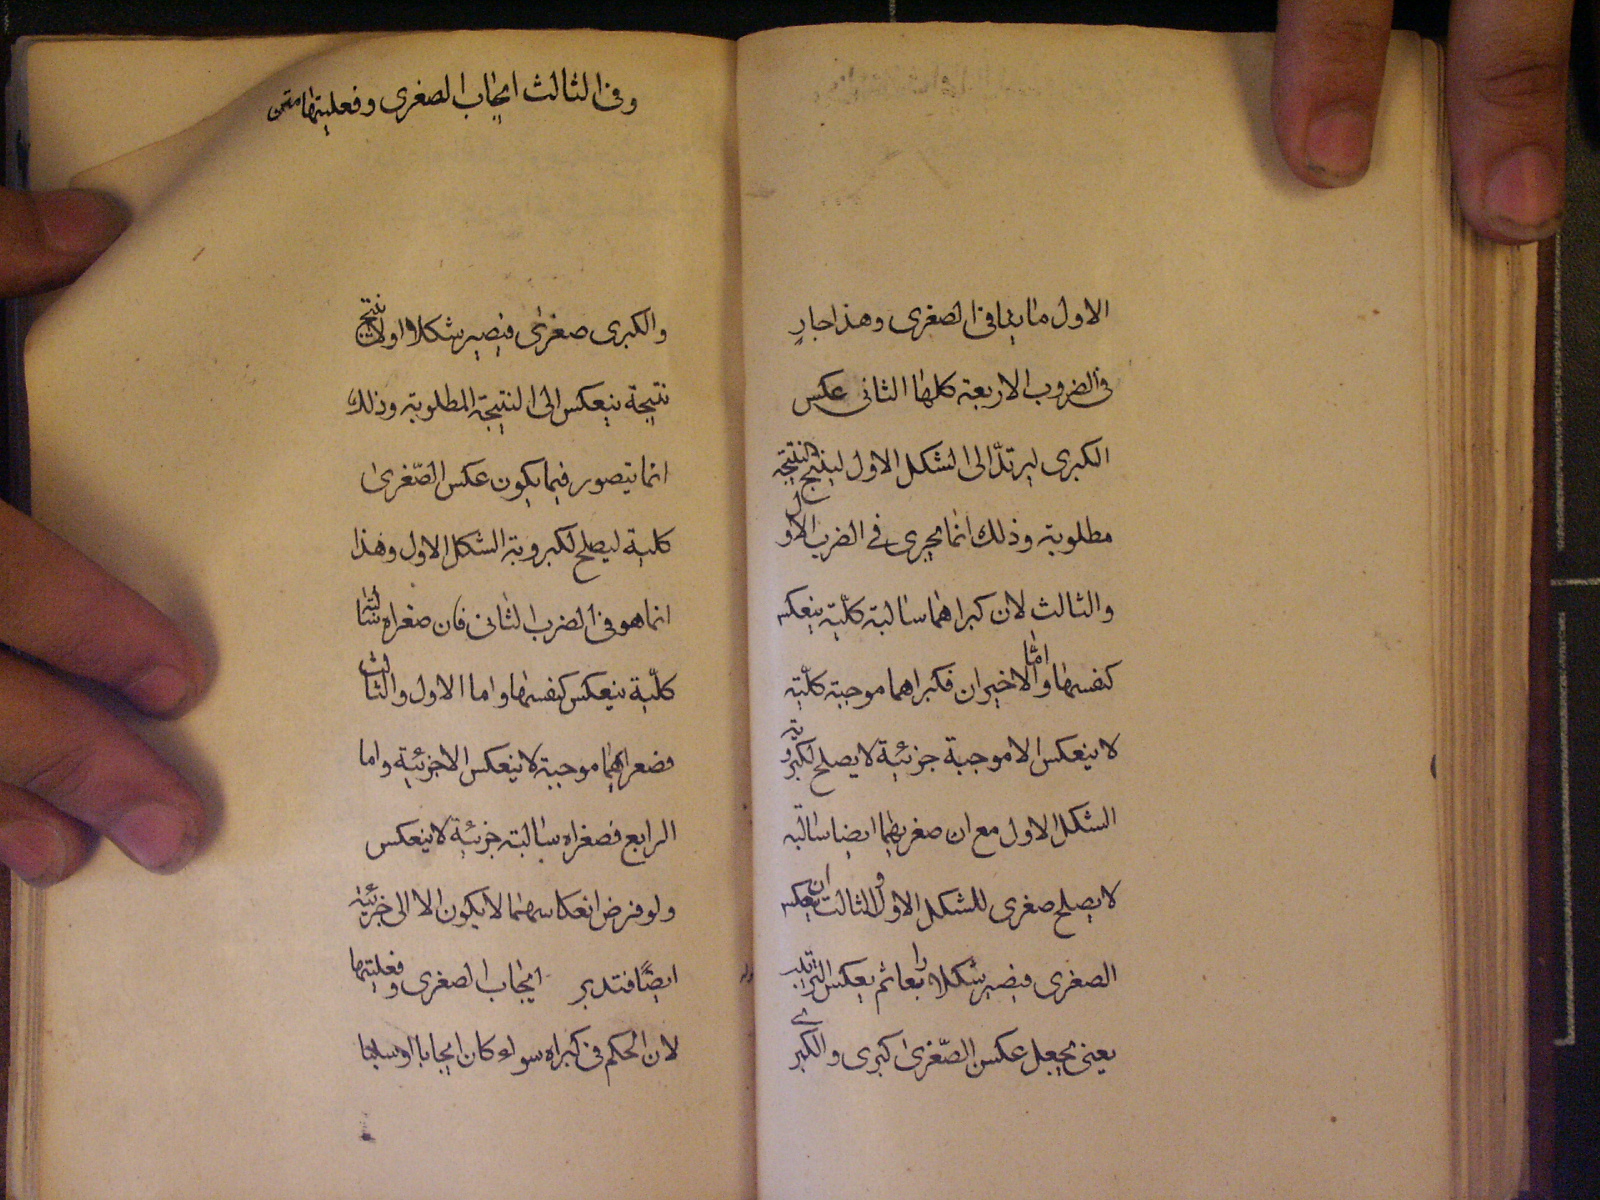 الاول ما ينافى الصغرى وهذا جارٍ
فى الضروب الاربعة كلها الثانى عكس
الكبرى ليرتدّ الى الشكل الاول لينتج النتيجة
مطلوبة وذلك انما يجرى فى الضرب الاول
والثالث لان كبراهما سالبة كلّية ينعكس
كنفسها واما الاخيران فكبراهما موجبة كلّية
لا ينعكس الا موجبة جزئية لا يصلح لكبروية
الشكل الاول مع ان صغريهما ايضا سالبة
لا يصلح صغرى للشكل الاول والثالث ان ينعكس
الصغرى فيصير شكلا رابعا ثم يعكس الترتيب
يعنى يجعل عكس الصّغرى كبرى والكبرى
وفى الثالث ايجاب الصغرى وفعليتها متن
والكبرى صغرى فيصير شكلا اولا ينتج
نتيجة ينعكس الى النتيجة المطلوبة وذلك
انما يتصور فيما يكون عكس الصّغرى
كلية ليصلح لكبروية الشكل الاول وهذا
انما هو فى الضرب الثانى فان صغراه سالبة
كلّية ينعكس كنفسها واما الاول والثالث
فصغراهما موجبة لا ينعكس الا جزئية واما
الرابع فصغراه سالبة جزئية لا ينعكس
ولو فرض انعكاسهما لا يكون الا الى جزئية
ايضًا فتدبر ايجاب الصغرى وفعليتها
لان الحكم فى كبراه سواء كان ايجابا او سلبا